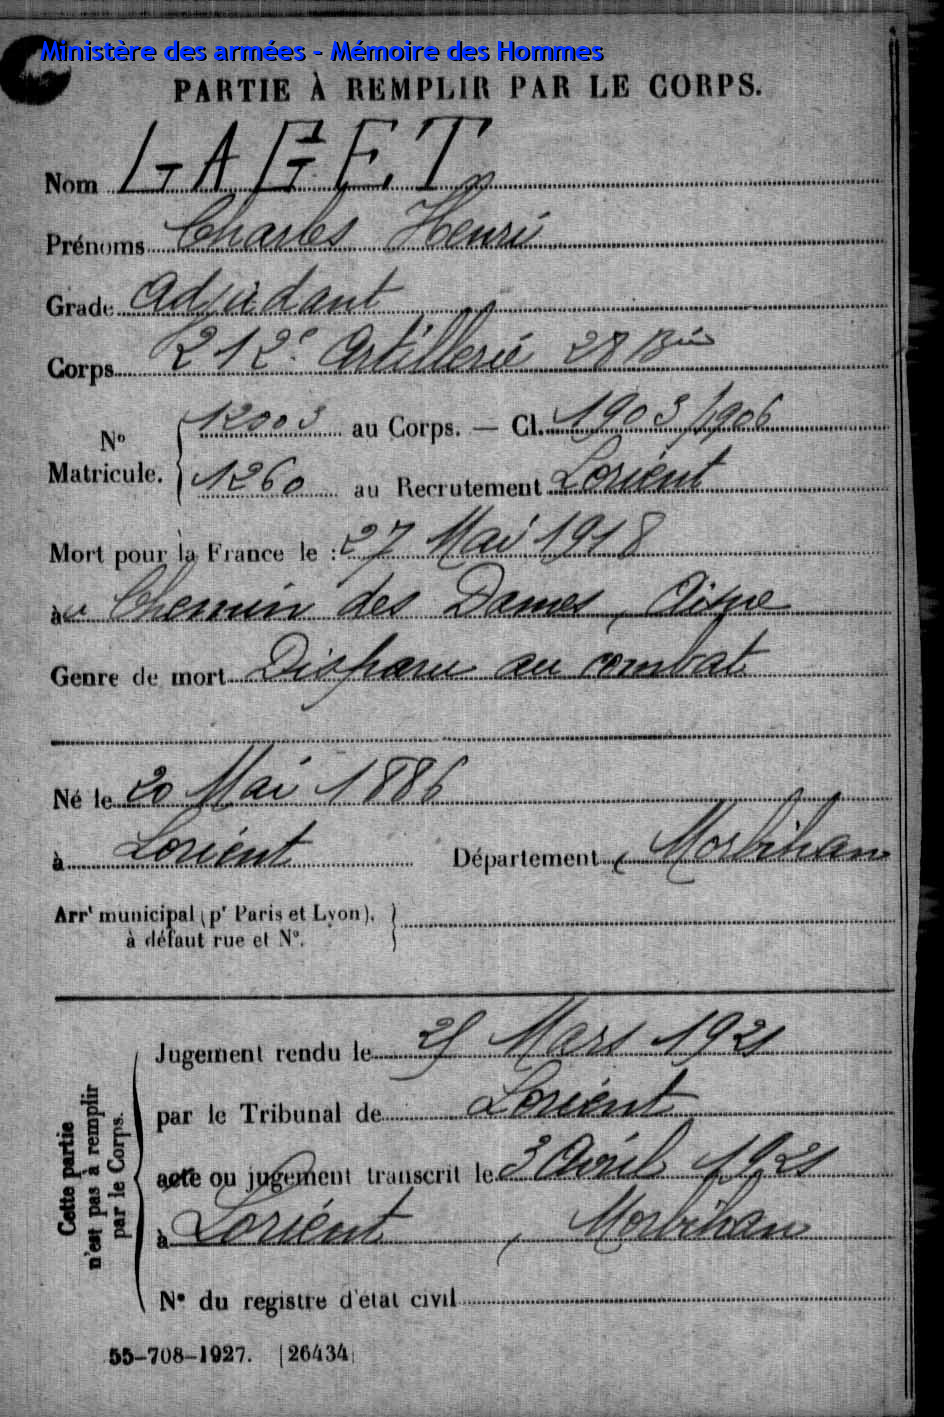 Ministère des armées - Mémoire des Hommes
PARTIE À REMPLIR PAR LE CORPS.
Nom LAGET
Prénoms Charles Henri
Grade Adjudant
Corps 212e Artillerie 28 Bie
No Matricule. 12003 au Corps. — Cl. 1903/1906
1260 au Recrutement Lorient
Mort pour la France le : 27 Mai 1918
au Chemin des Dames, Aisne
Genre de mort Disparu au combat
Né le 20 Mai 1886
à Lorient Département Morbihan
Arrt municipal (pr Paris et Lyon),
à défaut rue et No.
Cette partie
n'est pas à remplir
par le Corps.
Jugement rendu le Mars 1921
par le Tribunal de Lorient
acte ou jugement transcrit le 3 Avril 1921
à Lorient, Morbihan
No du registre d'état civil
55-708-1927. [26434]